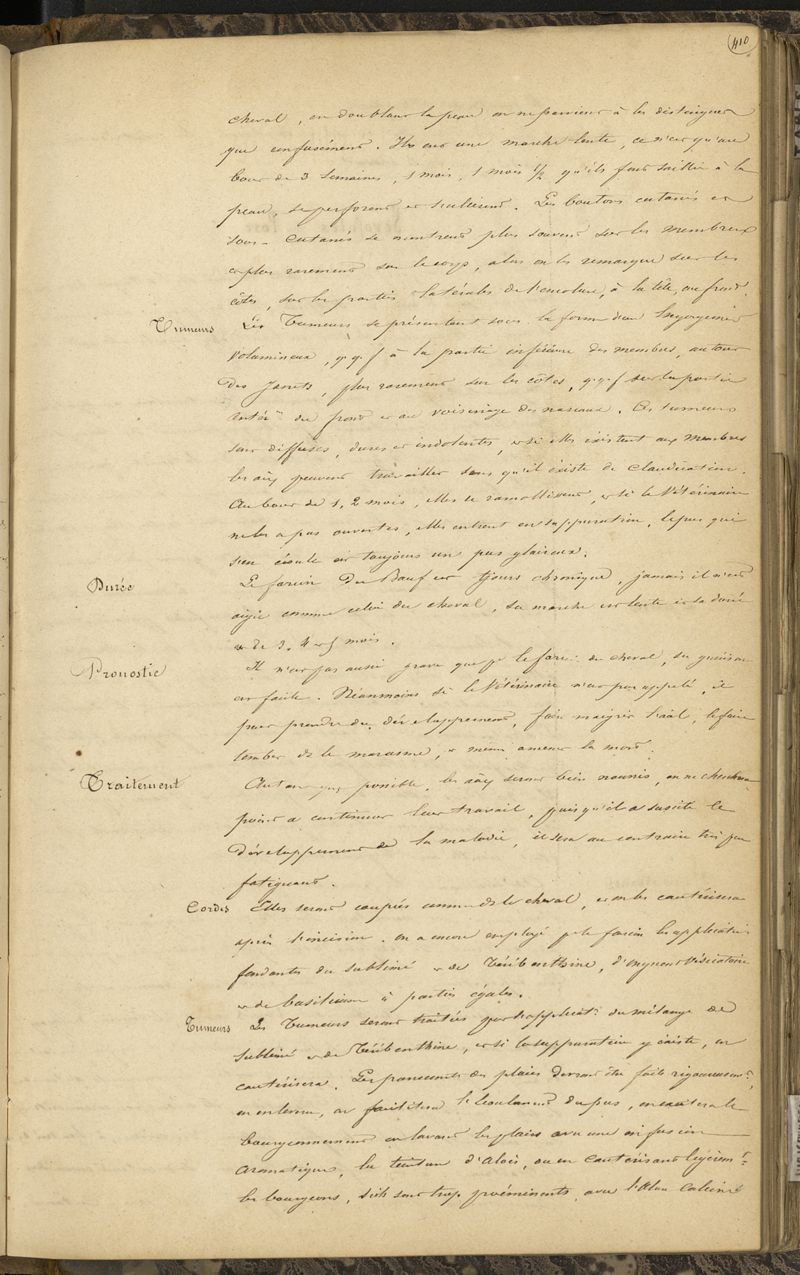 410
cheval, en doublant la peau on ne parvient à les distinguer
que confusément. Ils ont une marche lente, ce n'est qu'au
bout de 3 semaines, 1 mois, 1 mois 1/2 qu'ils font saillie à la
peau, se perforent et s'ulcèrent. Les boutons cutanés et
sous-cutanés se montrent plus souvent sur les membres
et plus rarement sur le corps, alors on les remarque sur les
côtes, sur les parties latérales de l'encolure, à la tête, au front.
Tumeurs Les Tumeurs se présentent sous la forme d'un Engorgement
volumineux, qq f à la partie inférieure des membres, autour
des Jarrets, plus rarement sur les côtes, qq f sur la partie
antér du front et au voisinage des naseaux. Ces tumeurs
sont diffuses, dures et indolentes, et si elles existent aux membres
les aux peuvent travailler sans qu'il existe de claudication.
Au bout de 1, 2 mois, elles se ramollissent, et si le Vétérinaire
ne les a pas ouvertes, elles entrent en suppuration, le pus qui
s'en écoule est toujours un pus glaireux.
Durée Le farcin du Bœuf est tjours chronique, jamais il n'est
aigu comme celui du cheval, sa marche est lente et sa durée
est de 3, 4 et 5 mois.
Pronostic Il n'est pas aussi grave que le farcin du cheval, sa guérison
est facile. Néanmoins si le Vétérinaire n'est pas appelé, il
peut prendre du développement, faire maigrir l'aal, le faire
tomber ds le marasme, et même amener la mort.
Traitement Autant que possible, les aux seront bien nourris, on ne cherchera
point à continuer leur travail, puisqu'il a suscité le
développement de la maladie, il sera au contraire très peu
fatiguant.
Cordes Elles seront coupées comme ds le cheval, et on les cautérisera
après l'incision. on a encore employé pr le farcin les applicatis
fondantes du sublimé et de Térébenthine, d'onguent Vésicatoire
et de basilicum à parties égales.
Tumeurs Les Tumeurs seront traitées par l'applicati du mélange de
sublimé et de Térébenthine, et si la suppuration y existe, on
cautérisera. Les pansements des plaies devront être faits rigoureusemt,
on enlevera, on facilitera l'écoulement du pus, on excitera le
bourgeonnement en lavant les plaies avec une infusion
aromatique, la teinture d'Aloès, ou en cautérisant légèremt
les bourgeons, s'ils sont trop proéminents, avec l'Alun calciné